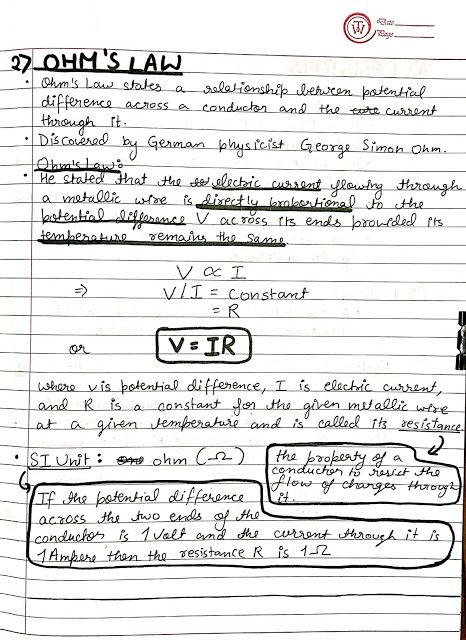 TW
Date
Page
27 OHM'S LAW
• Ohm's Law states a relationship between potential
difference across a conductor and the current
through it.
• Discovered by German physicist George Simon Ohm.
Ohm's Law:
• He stated that the electric current flowing through
a metallic wire is directly proportional to the
potential difference V across its ends provided its
temperature remains the same.
V ∝ I
⇒ V/I = Constant
= R
or V = IR
where v is potential difference, I is electric current,
and R is a constant for the given metallic wire
at a given temperature and is called its resistance
the property of a
conductor to resist the
flow of charges through
it.
• SI Unit: ohm (Ω)
If the potential difference
across the two ends of the
conductor is 1 Volt and the current through it is
1 Ampere then the resistance R is 1Ω